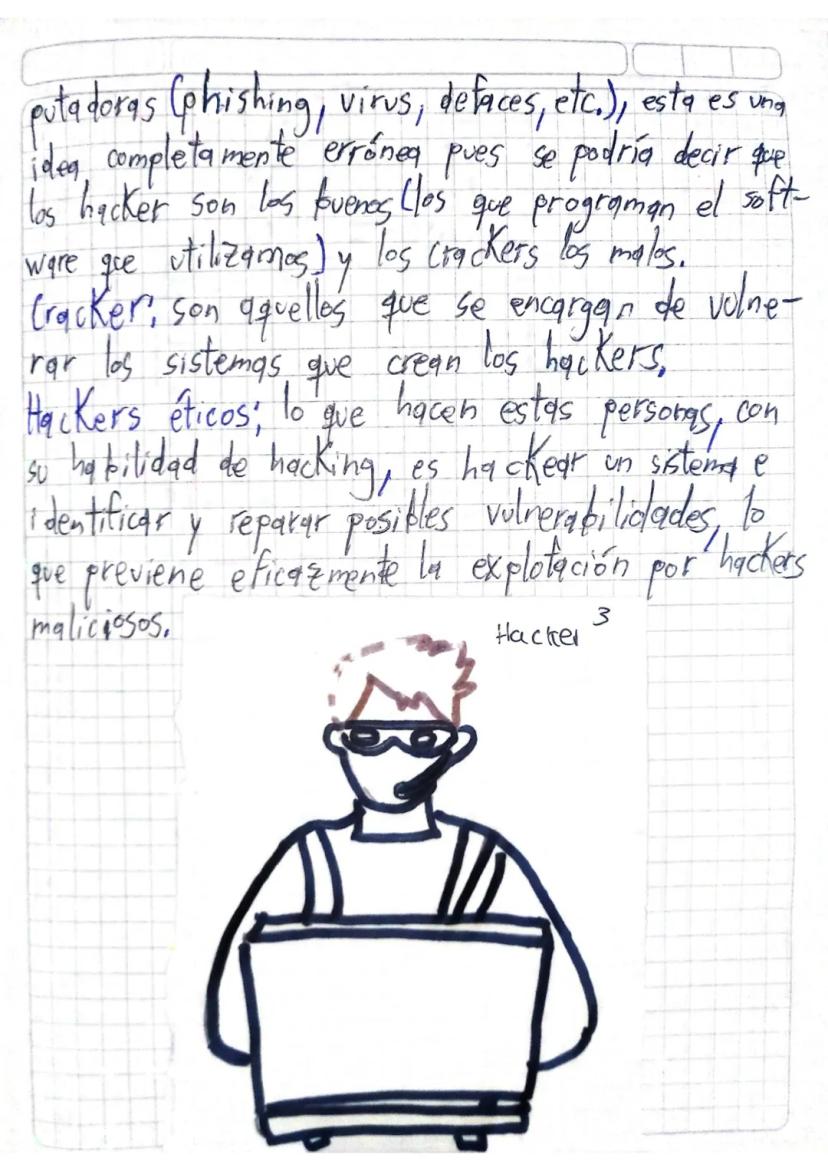 putadoras (phishing, virus, defaces, etc.), esta es una
idea completamente errónea pues se podría decir que
los hacker son los buenos (los que programan el soft-
ware que utilizamos) y los crackers los malos.
Cracker: son aquellos que se encargan de vulne-
rar los sistemas que crean los hackers.
Hackers éticos: lo que hacen estas personas, con
su habilidad de hacking, es hackear un sistema e
identificar y reparar posibles vulnerabilidades, lo
que previene eficazmente la explotación por hackers
maliciosos.
Hacker 3